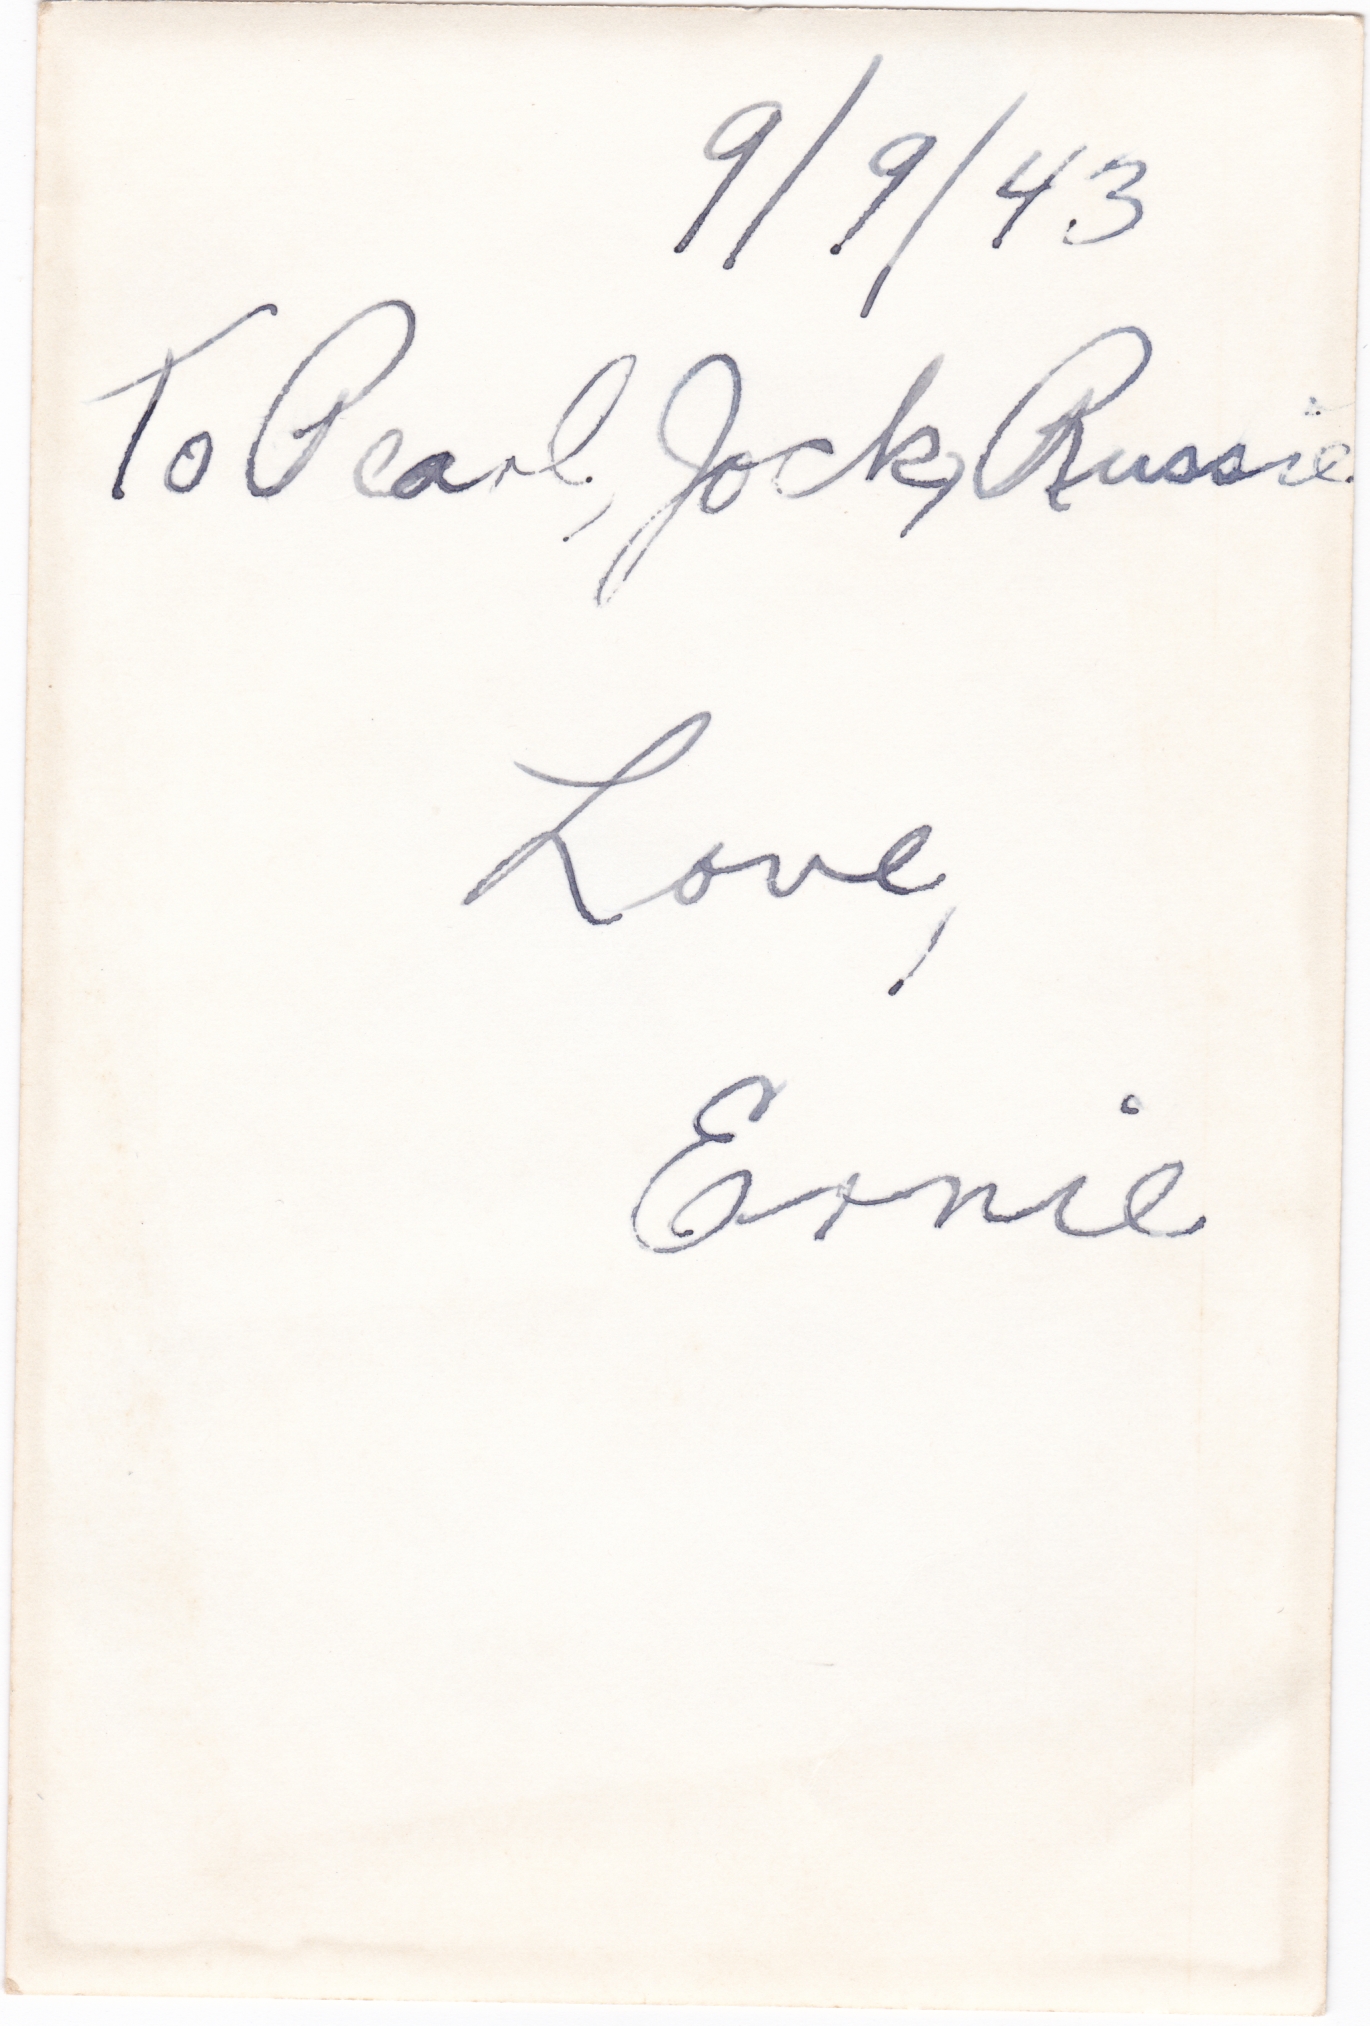 9/9/43
To Pearl, Jock, Russie
Love,
Ernie